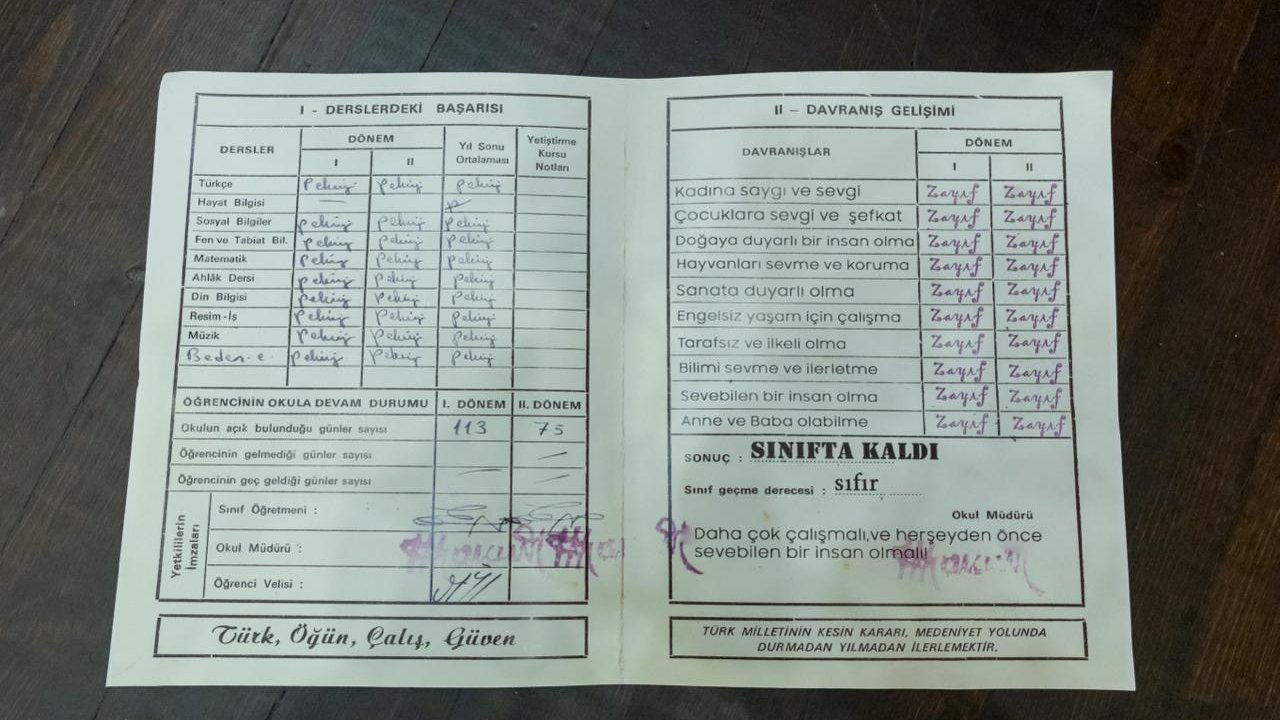 I - DERSLERDEKİ BAŞARISI
DERSLER DÖNEM Yıl Sonu Ortalaması Yetiştirme Kursu Notları
I II
Türkçe Pekiyi Pekiyi Pekiyi
Hayat Bilgisi — P
Sosyal Bilgiler Pekiyi Pekiyi Pekiyi
Fen ve Tabiat Bil. Pekiyi Pekiyi Pekiyi
Matematik Pekiyi Pekiyi Pekiyi
Ahlâk Dersi Pekiyi Pekiyi Pekiyi
Din Bilgisi Pekiyi Pekiyi Pekiyi
Resim-İş Pekiyi Pekiyi Pekiyi
Müzik Pekiyi Pekiyi Pekiyi
Beden-e. Pekiyi Pekiyi Pekiyi
ÖĞRENCİNİN OKULA DEVAM DURUMU I. DÖNEM II. DÖNEM
Okulun açık bulunduğu günler sayısı 113 75
Öğrencinin gelmediği günler sayısı —
Öğrencinin geç geldiği günler sayısı — —
Yetkililerin İmzaları
Sınıf Öğretmeni :
Okul Müdürü :
Öğrenci Velisi :
Türk, Öğün, Çalış, Güven
II – DAVRANIŞ GELİŞİMİ
DAVRANIŞLAR DÖNEM
I II
Kadına saygı ve sevgi Zayıf Zayıf
Çocuklara sevgi ve şefkat Zayıf Zayıf
Doğaya duyarlı bir insan olma Zayıf Zayıf
Hayvanları sevme ve koruma Zayıf Zayıf
Sanata duyarlı olma Zayıf Zayıf
Engelsiz yaşam için çalışma Zayıf Zayıf
Tarafsız ve ilkeli olma Zayıf Zayıf
Bilimi sevme ve ilerletme Zayıf Zayıf
Sevebilen bir insan olma Zayıf Zayıf
Anne ve Baba olabilme Zayıf Zayıf
SONUÇ : SINIFTA KALDI
Sınıf geçme derecesi : sıfır
Okul Müdürü
Daha çok çalışmalı,ve herşeyden önce
sevebilen bir insan olmalı!
TÜRK MİLLETİNİN KESİN KARARI, MEDENİYET YOLUNDA
DURMADAN YILMADAN İLERLEMEKTİR.